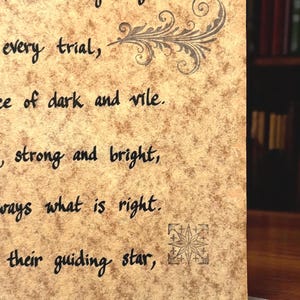 every trial,
of dark and vile.
, strong and bright,
what is right.
their guiding star,